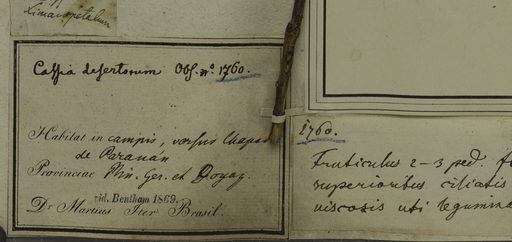 Limacopetalum
Cassia desertorum Obs. nº. 1760.
Habitat in campis, versus Chapad
de Paranán
Provinciae Min. Ger. et Goyaz.
vid. Bentham 1869.
Dr Martius Iter Brasil.
1760.
Fruticulus 2-3 ped.
superioribus ciliatis
viscosis uti legumina